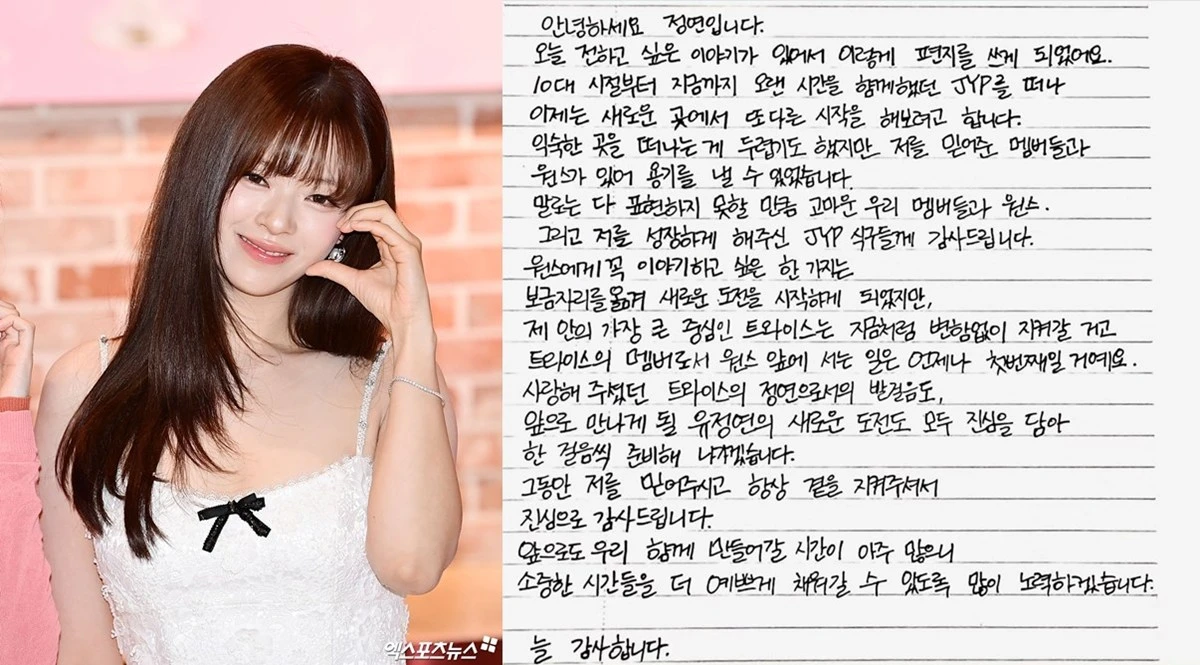 안녕하세요 정연입니다.
오늘 전하고 싶은 이야기가 있어서 이렇게 편지를 쓰게 되었어요.
10대 시절부터 지금까지 오랜 시간을 함께했던 JYP를 떠나
이제는 새로운 곳에서 또다른 시작을 해보려고 합니다.
익숙한 곳을 떠나는게 두렵기도 했지만 저를 믿어준 멤버들과
원스가 있어 용기를 낼 수 있었습니다.
말로는 다 표현하지 못할 만큼 고마운 우리 멤버들과 원스.
그리고 저를 성장하게 해주신 JYP 식구들께 감사드립니다.
원스에게 꼭 이야기하고 싶은 한 가지는
보금자리를 옮겨 새로운 도전을 시작하게 되었지만,
제 안의 가장 큰 중심인 트와이스는 지금처럼 변함없이 지켜갈 거고
트와이스의 멤버로서 원스 앞에 서는 일은 언제나 첫번째일 거예요.
사랑해 주셨던 트와이스의 정연으로서의 발걸음도,
앞으로 만나게 될 유정연의 새로운 도전도 모두 진심을 담아
한 걸음씩 준비해 나가겠습니다.
그동안 저를 믿어주시고 항상 곁을 지켜주셔서
진심으로 감사드립니다.
앞으로도 우리 함께 만들어갈 시간이 아주 많으니
소중한 시간들을 더 예쁘게 채워갈 수 있도록 많이 노력하겠습니다.
늘 감사합니다.
엑스포츠뉴스